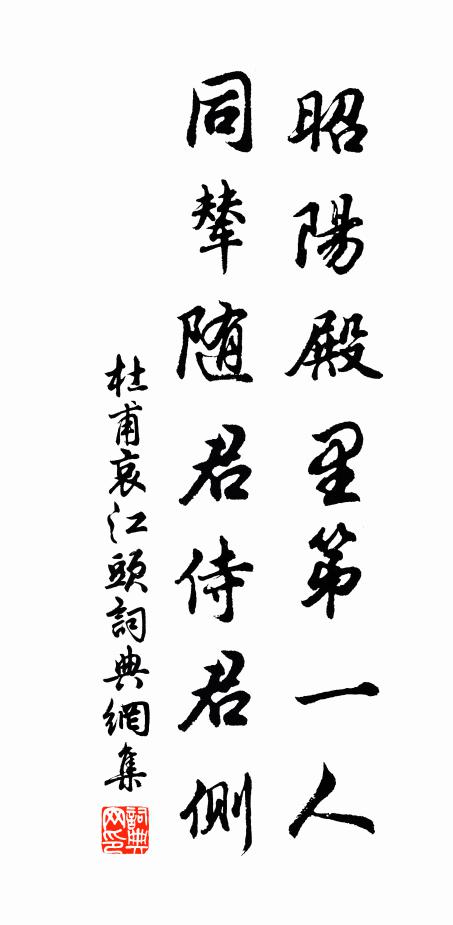 昭陽殿里第一人
同輦随君侍君側
杜甫哀江頭詞典網集
詞典网印